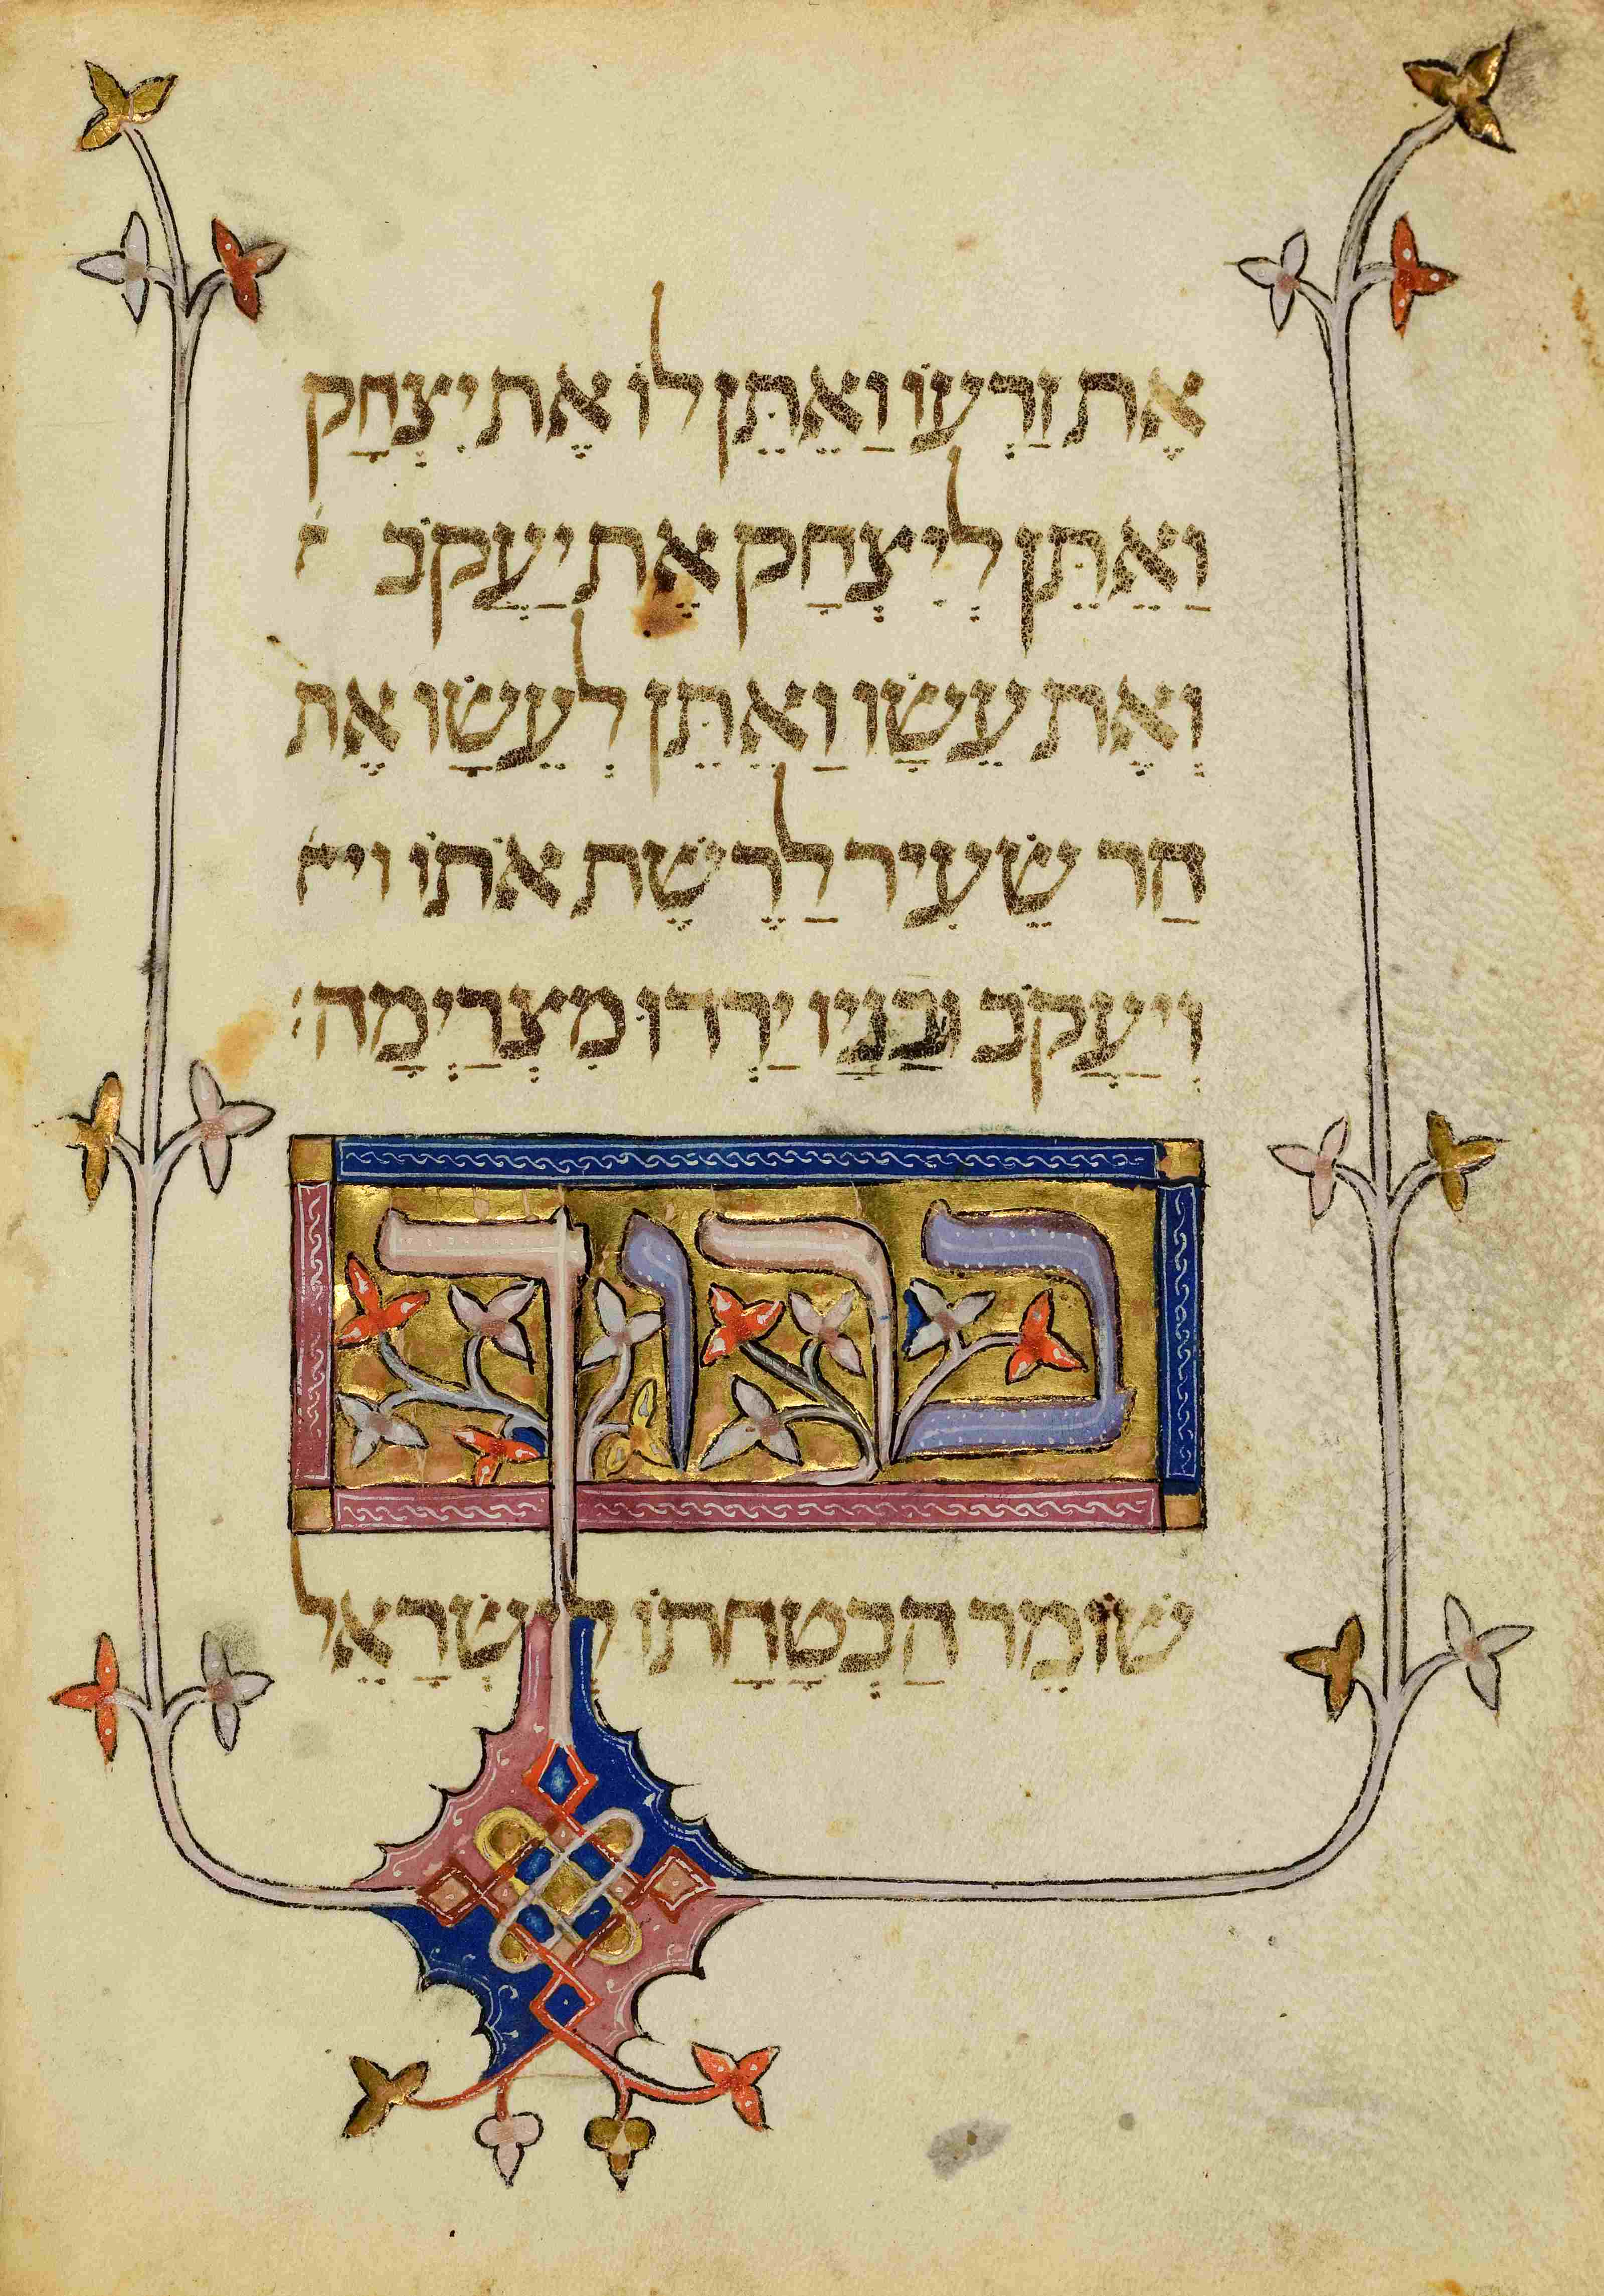 אֶת זַרְעוֹ וַאֵתֵּן לוֹ אֶת יִצְחָק
וַאֵתֵּן לְיִצְחָק אֶת יַעֲקֹב
וְאֶת עֵשָׂו וַאֵתֵּן לְעֵשָׂו אֶת
הַר שֵׂעִיר לַרֶשֶׁת אֹתוֹ וי
וְיַעֲקֹב וּבַנָיו יַרְדוּ מִצְרַיְמָה׃
ברוך
שׁוֹמֵר הַבְטָחַתוֹ לְיִשְׂרָאֵל